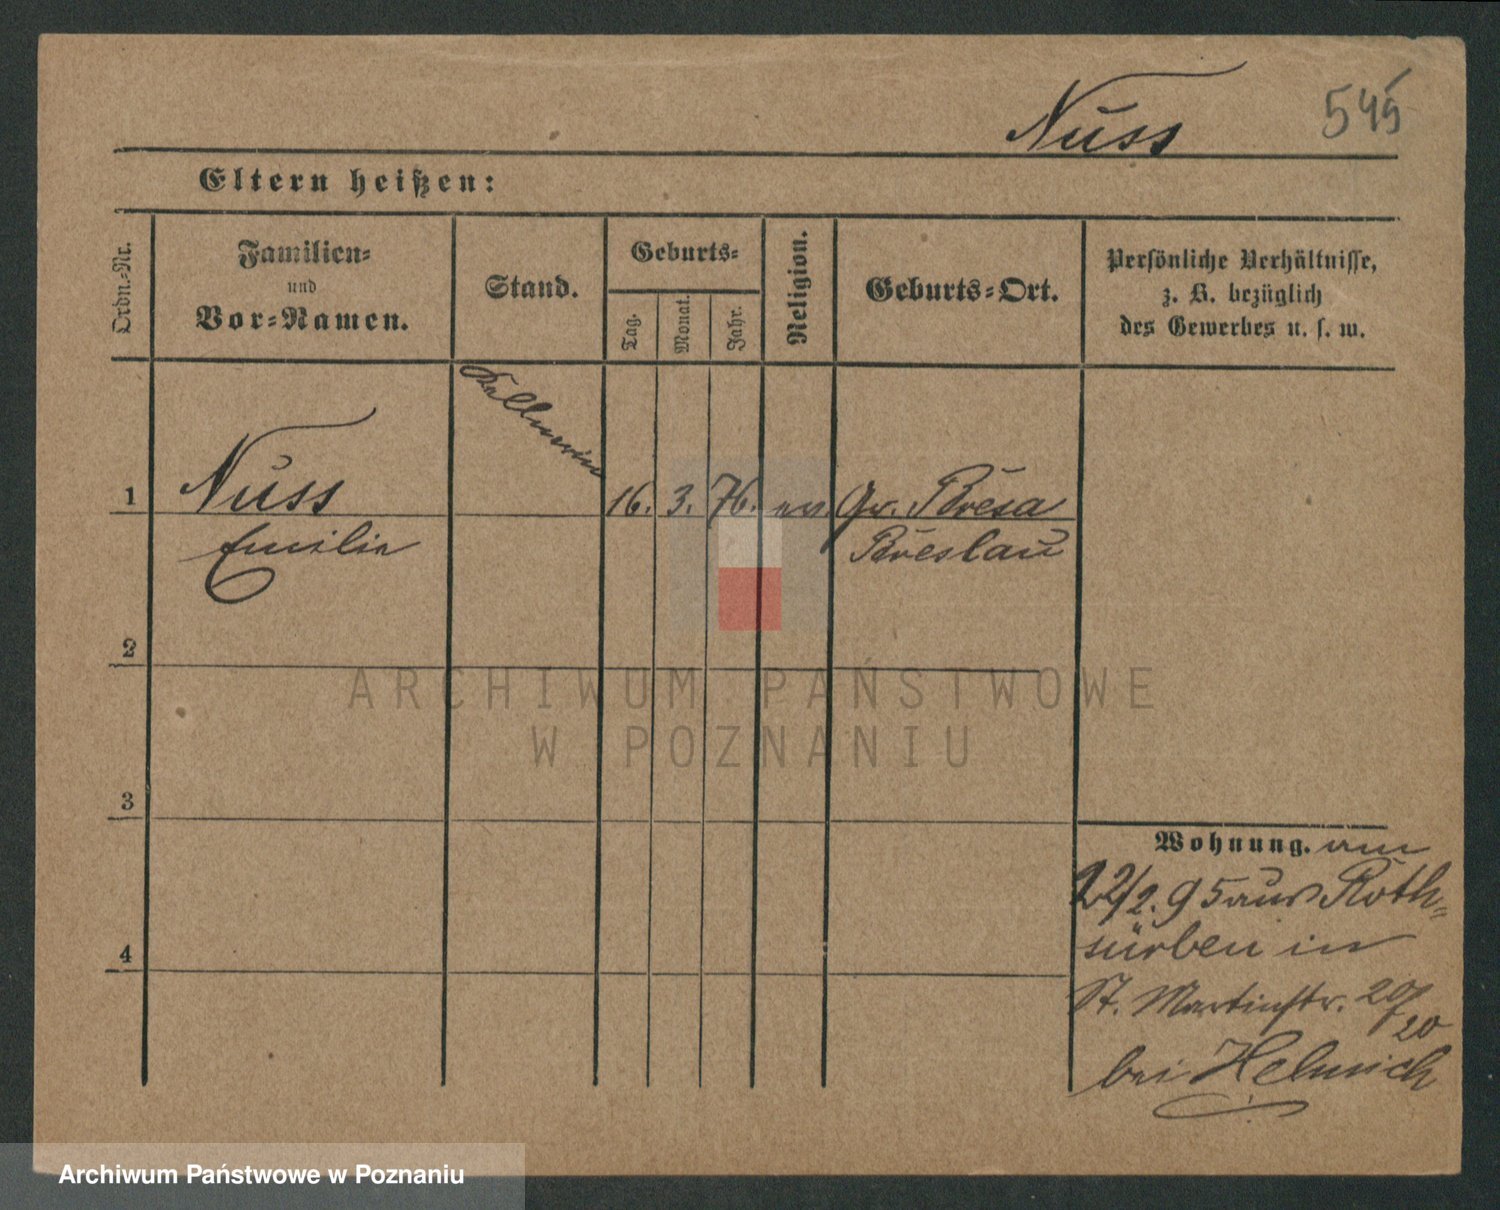 Nuss
545
Eltern heißen:
Ordn.-Nr.
Familien-
und
Vor-Namen.
Stand.
Geburts-
Tag.
Monat.
Jahr.
Religion.
Geburts-Ort.
Persönliche Verhältnisse,
z. B. bezüglich
des Gewerbes u. s. w.
Kellnerin
1 Nuss 16. 3. 76. ev. Gr. Bresa
Emilie Breslau
2
ARCHIWUM PAŃSTWOWE
W POZNANIU
3
Wohnung. am
22/2. 95 aus Roth-
sürben in
St. Martinstr. 20/
20
bei Helmich
4
Archiwum Państwowe w Poznaniu